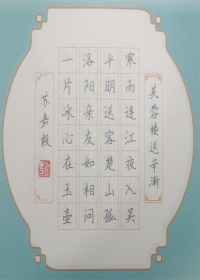 芙蓉楼送辛渐
寒雨连江夜入吴
平明送客楚山孤
洛阳亲友如相问
一片冰心在玉壶
苏嘉毅